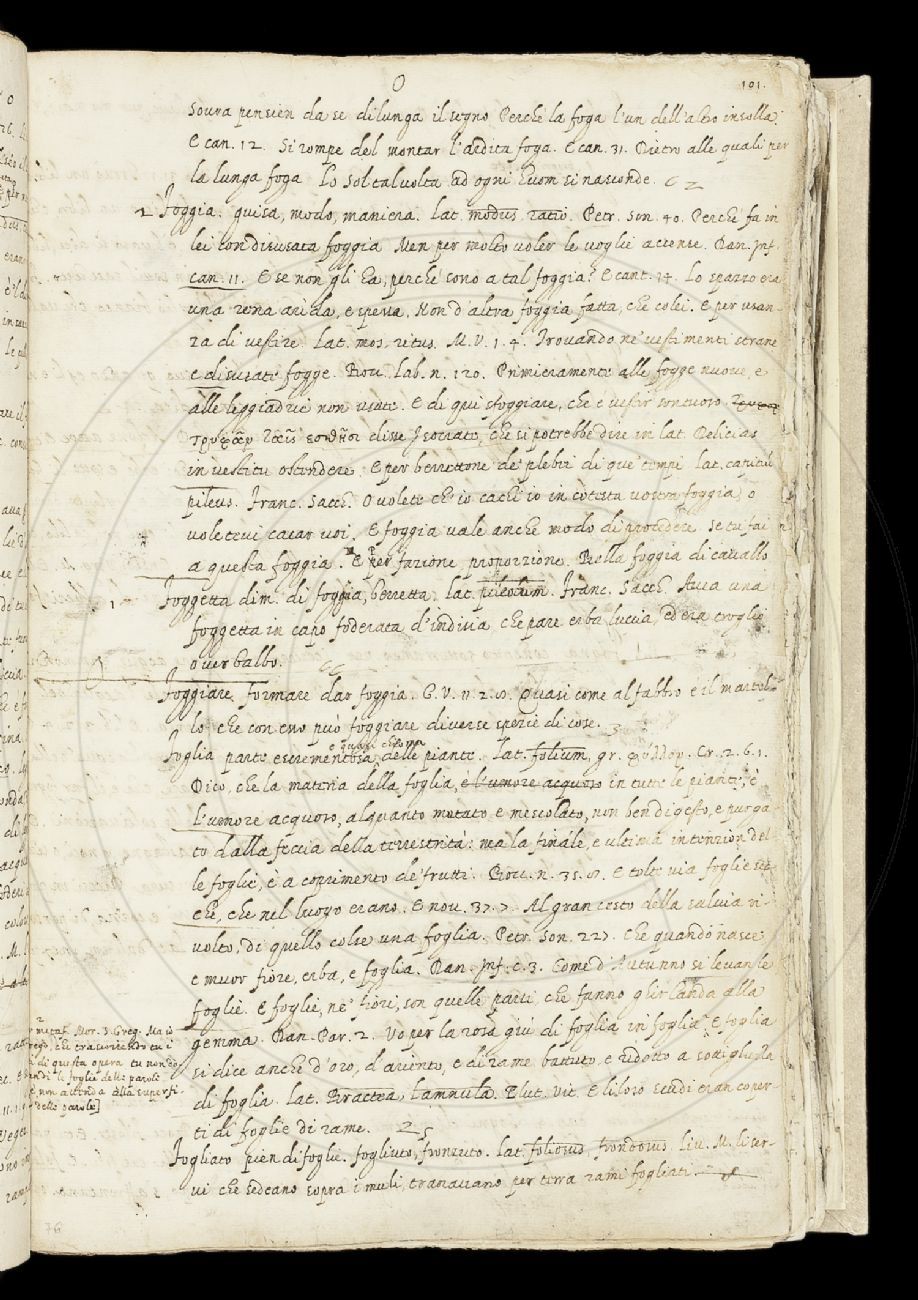 O
101.
Sovra pensier da se dilunga il segno Perchè la foga l'un dell'altro insolla.
E can. 12. Si rompe del montar l'ardita foga. E can. 31. Dietro alle quali per
la lunga foga Lo Sol talvolta ad ogni huom si nasconde.
Foggia. guisa, modo, maniera. lat. modus. ratio. Petr. son. 40. Perchè fa in
lei con disusata foggia Men per molto voler le voglie accense. Dan. Inf.
can. 11. E se non gli ha, perchè sono a tal foggia? E cant. 14. Lo spazzo era
una rena arida, e spessa, Non d'altra foggia fatta, che colei. E per usan-
za di vestire. Lat. mos. ritus. M. V. 1. 4. Trovando ne' vestimenti strane
e disusate fogge. Bocc. lab. n. 120. Primieramente alle fogge nuove, e
alle leggiadrie non usate. E di qui sfoggiare, che è vestir sontuoso
disse Isocrate, che si potrebbe dire in lat. Delicias
in vestitu ostendere. E per berrettone de' plebei di que' tempi lat. capitis
pileus. Franc. Sacch. O volete ch'io cachi io in cotesta vostra foggia, o
voletevi cacar voi. E foggia vale anche modo di procedere. Se tu fai
a questa foggia. E per fazione proporzione. Bella foggia di cavallo
Foggetta dim. di foggia, berretta. lat. pileolum. Franc. Sacch. Avea una
foggetta in capo foderata d'indisia che pare erba luccia, ed era troglio
over balbo.
Foggiare formare dar foggia. G. V. n. 2. 8. Quasi come al fabbro è il martel-
lo che con esso può foggiare diverse spezie di cose.
e quasi chioma
Foglia parte escrementosa delle piante. Lat. folium, gr. φύλλον. Cr. 2. 6. 1.
Dico, che la materia della foglia, e l'umore acquoso in tutte le piante, è
l'umore acquoso, alquanto mutato, e mescolato, non ben digesto, e purga-
to dalla feccia della terrestrità: ma la finale, e ultima intenzion del-
le foglie, è a coprimento de' frutti. Bocc. n. 35. 8. E tolte via foglie sec-
che, che nel luogo erano. E nov. 37. 7. Al gran cesto della salvia ri-
volto, di quello colse una foglia. Petr. Son. 227. Che quando nasce
e muor fiore, erba, e foglia. Dan. Inf. c. 3. Come d'Autunno si levan le
foglie. E foglie, ne' fiori, son quelle parti, che fanno ghirlanda alla
gemma. Dan. Par. 2. Vo per la rosa giù di foglia in foglia. E foglia
si dice anche d'oro, d'ariento, e di rame battuto, e ridotto a sottigliezza
di foglia. Lat. Bractea, Lamnula. Plut. Vit. E li loro scudi eran coper-
ti di foglie di rame.
Fogliato pien di foglie. fogliuto, fronzuto. Lat. foliosus, frondosus. Liv. M. li ser-
vi che sedeano sopra i muli, trainavano per terra rami fogliati.
metaf. Mor. S. Greg. Ma io
prego, che trascorrendo tu i
di questa opera tu non do-
mandi le foglie delle parole
e non attenda alla superfi-
delle parole]
76